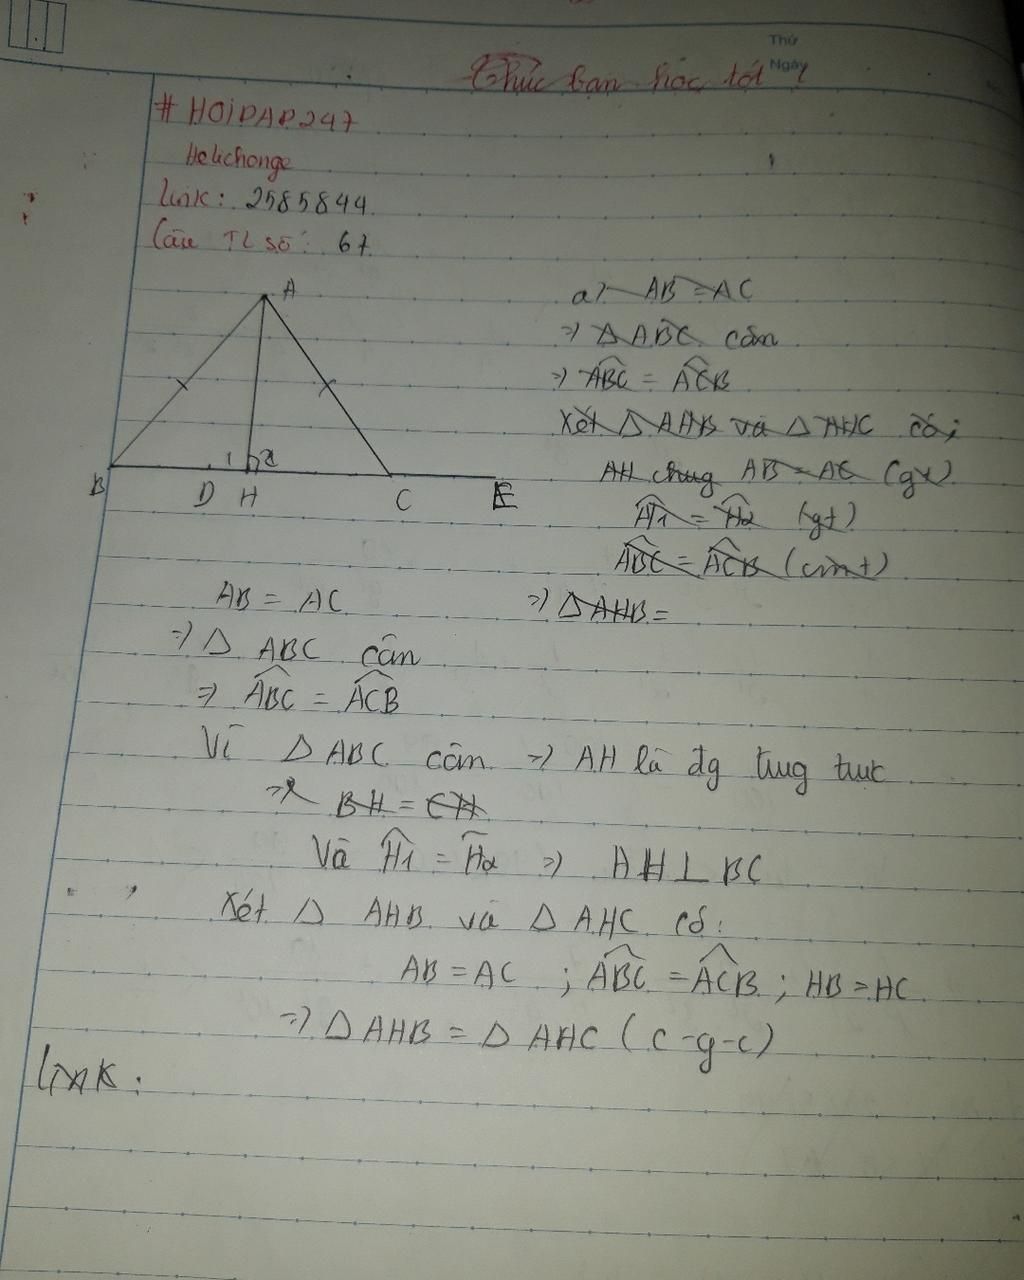 Thứ
Ngày
Chúc bạn học tốt !
# HOIDAP247
Helichonge
Link: 2585844
Câu TL số: 67
A
B
D
H
C
E
1
2
a) AB = AC
=> Δ ABC cân
=> ABC = ACB
Xét Δ AHB và Δ AHC có;
AH chug AB = AC (gt)
H1 = H2 (gt)
ABC = ACB (cmt)
=> Δ AHB =
AB = AC
=> Δ ABC cân
=> ABC = ACB
Vì Δ ABC cân => AH là đg trug trực
=> BH = CH
Và H1 = H2 => AH ⊥ BC
Xét Δ AHB và Δ AHC có:
AB = AC ; ABC = ACB ; HB = HC
=> Δ AHB = Δ AHC (c-g-c)
Link: